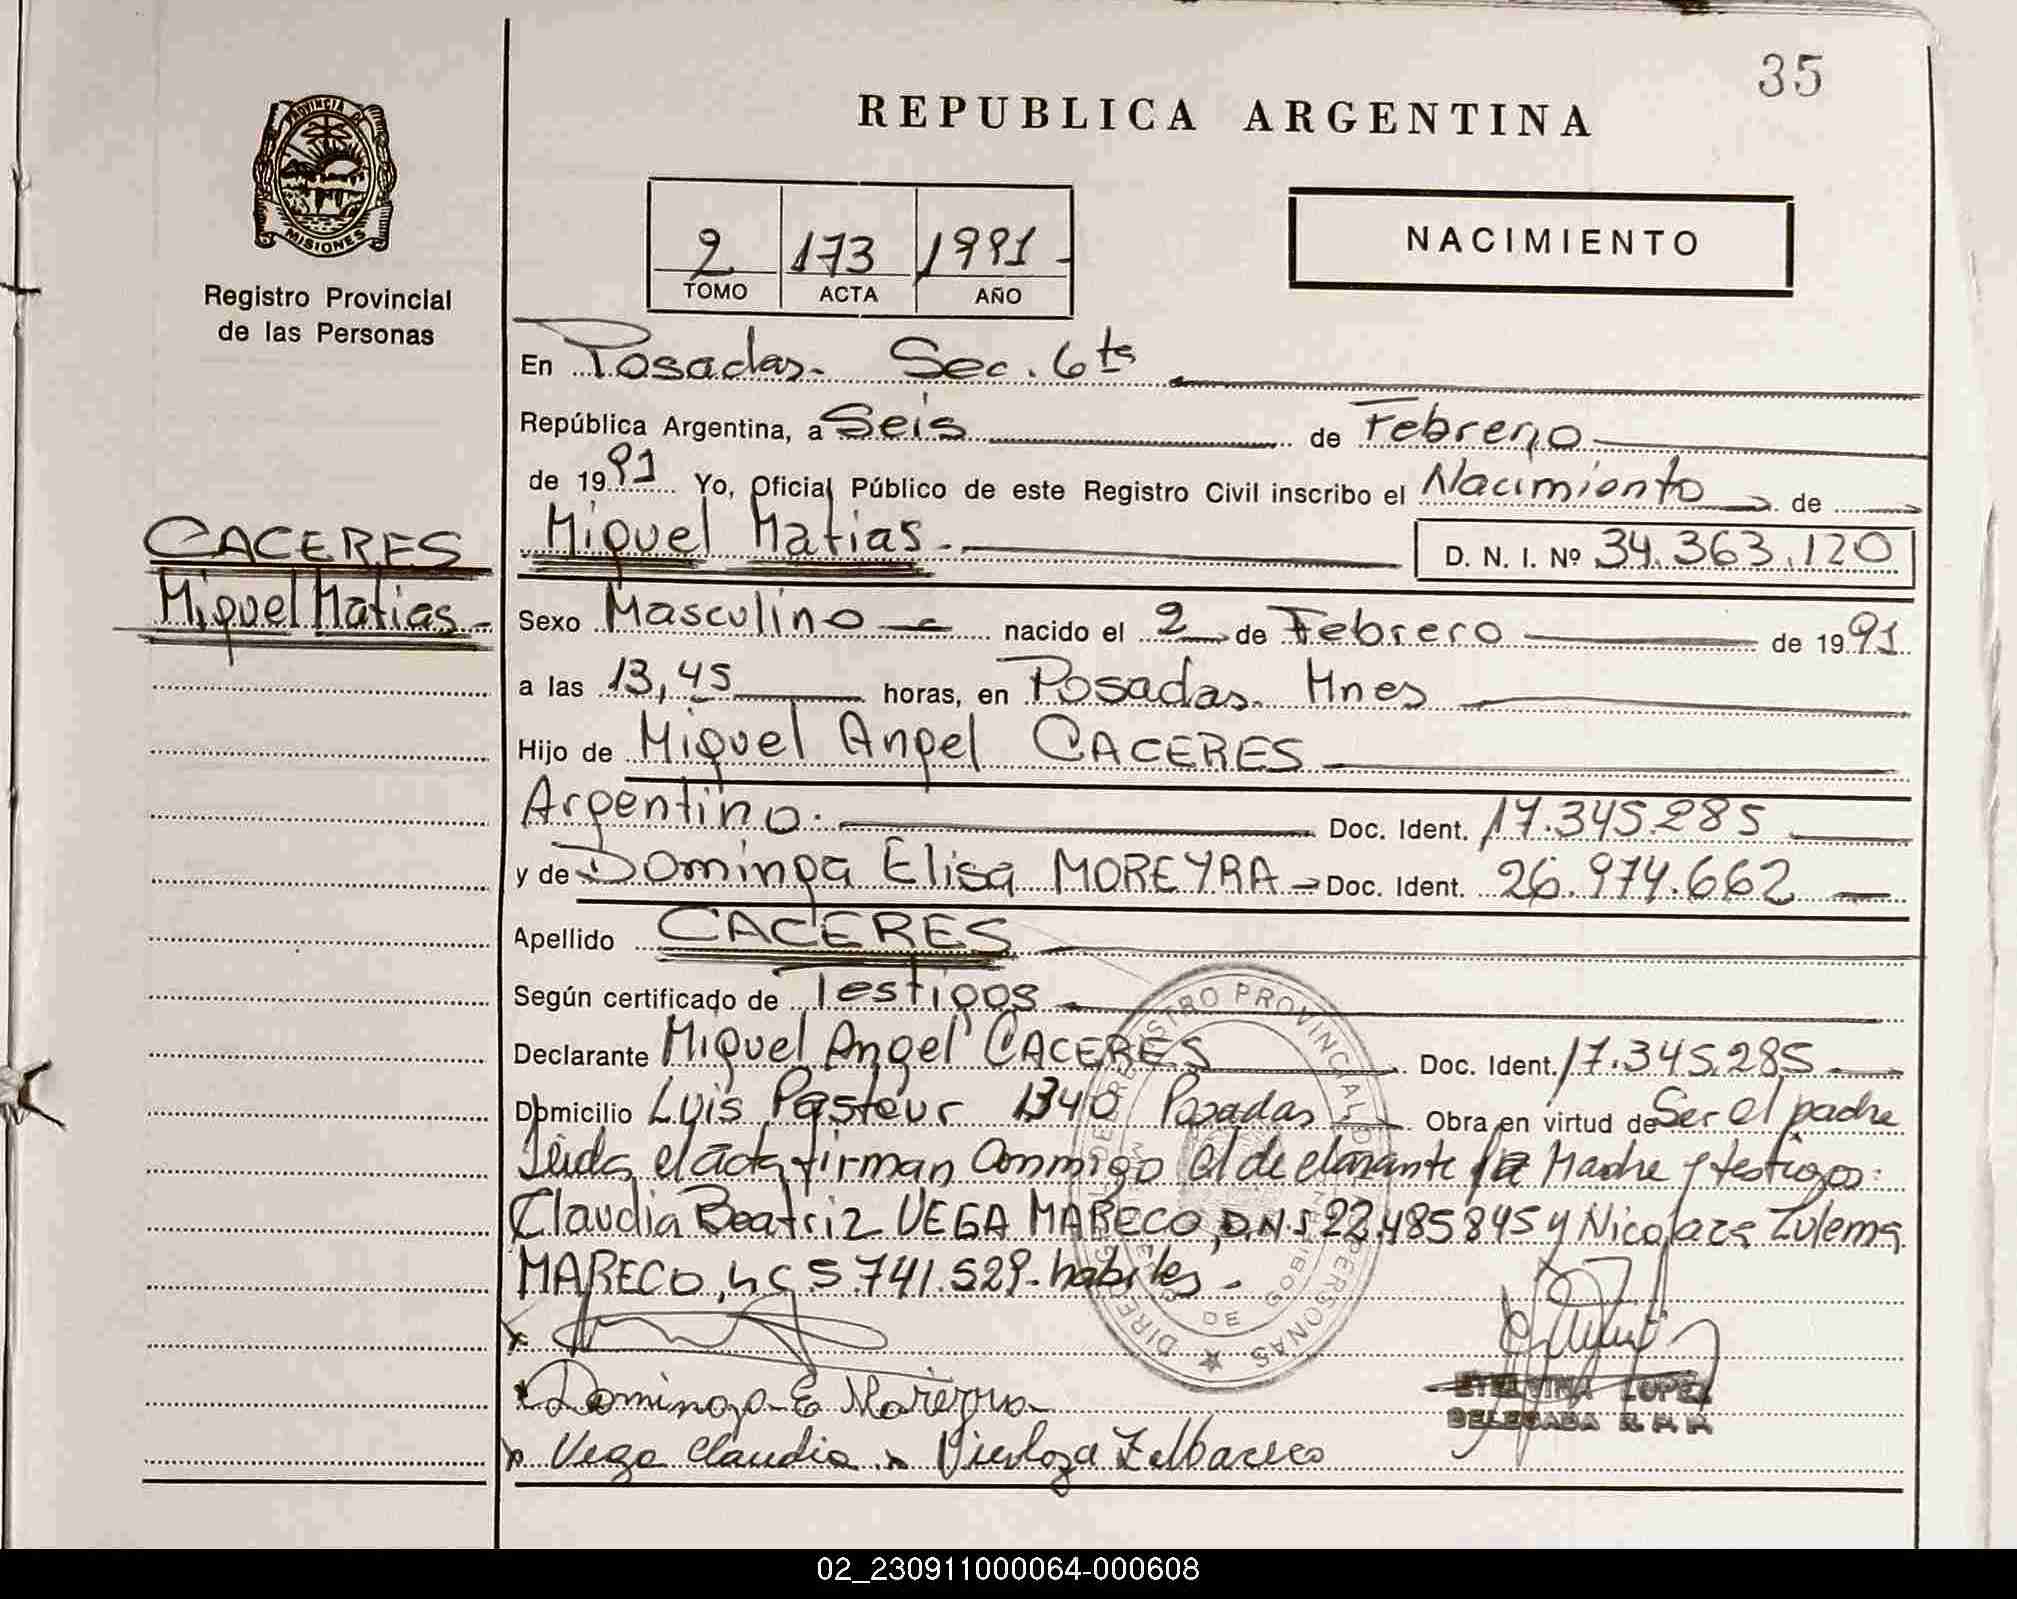 35
REPUBLICA ARGENTINA
PROVINCIA DE
MISIONES
Registro Provincial
de las Personas
NACIMIENTO
2 173 1991
TOMO ACTA AÑO
En Posadas. Sec. 6ta
República Argentina, a Seis de Febrero
de 1991 Yo, Oficial Público de este Registro Civil inscribo el Nacimiento de
Miguel Matias D. N. I. Nº 34.363.120
CACERES
Miguel Matias
Sexo Masculino nacido el 2 de Febrero de 1991
a las 13,45 horas, en Posadas. Mnes
Hijo de Miguel Angel CACERES
Argentino. Doc. Ident. 17.345.285
y de Dominga Elisa MOREYRA Doc. Ident. 26.974.662
Apellido CACERES
Según certificado de Testigos
Declarante Miguel Angel CACERES Doc. Ident. 17.345.285
Domicilio Luis Pasteur 1340 Posadas Obra en virtud de Ser el padre
Leida el acta firman conmigo el declarante la Madre y testigos:
Claudia Beatriz VEGA MARECO, D.N.I 22.485845 y Zulema
MARECO, 5.741.529. habiles
Dominga E Moreyra
Vega Claudia
ETELVINA LOPEZ
DELEGADA
02_230911000064-000608